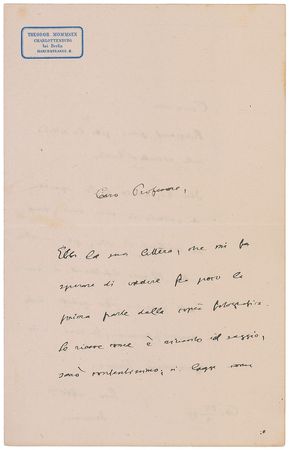 THEODOR MOMMSEN
CHARLOTTENBURG
bei Berlin
MARCHSTRASSE 8.
Caro Professore,
Ebbi la sua lettera, che mi fa
sperare di vedere fra poco la
prima parte della copia fotografica.
Se riesce come è riuscito il saggio,
sarò contentissimo; si legge